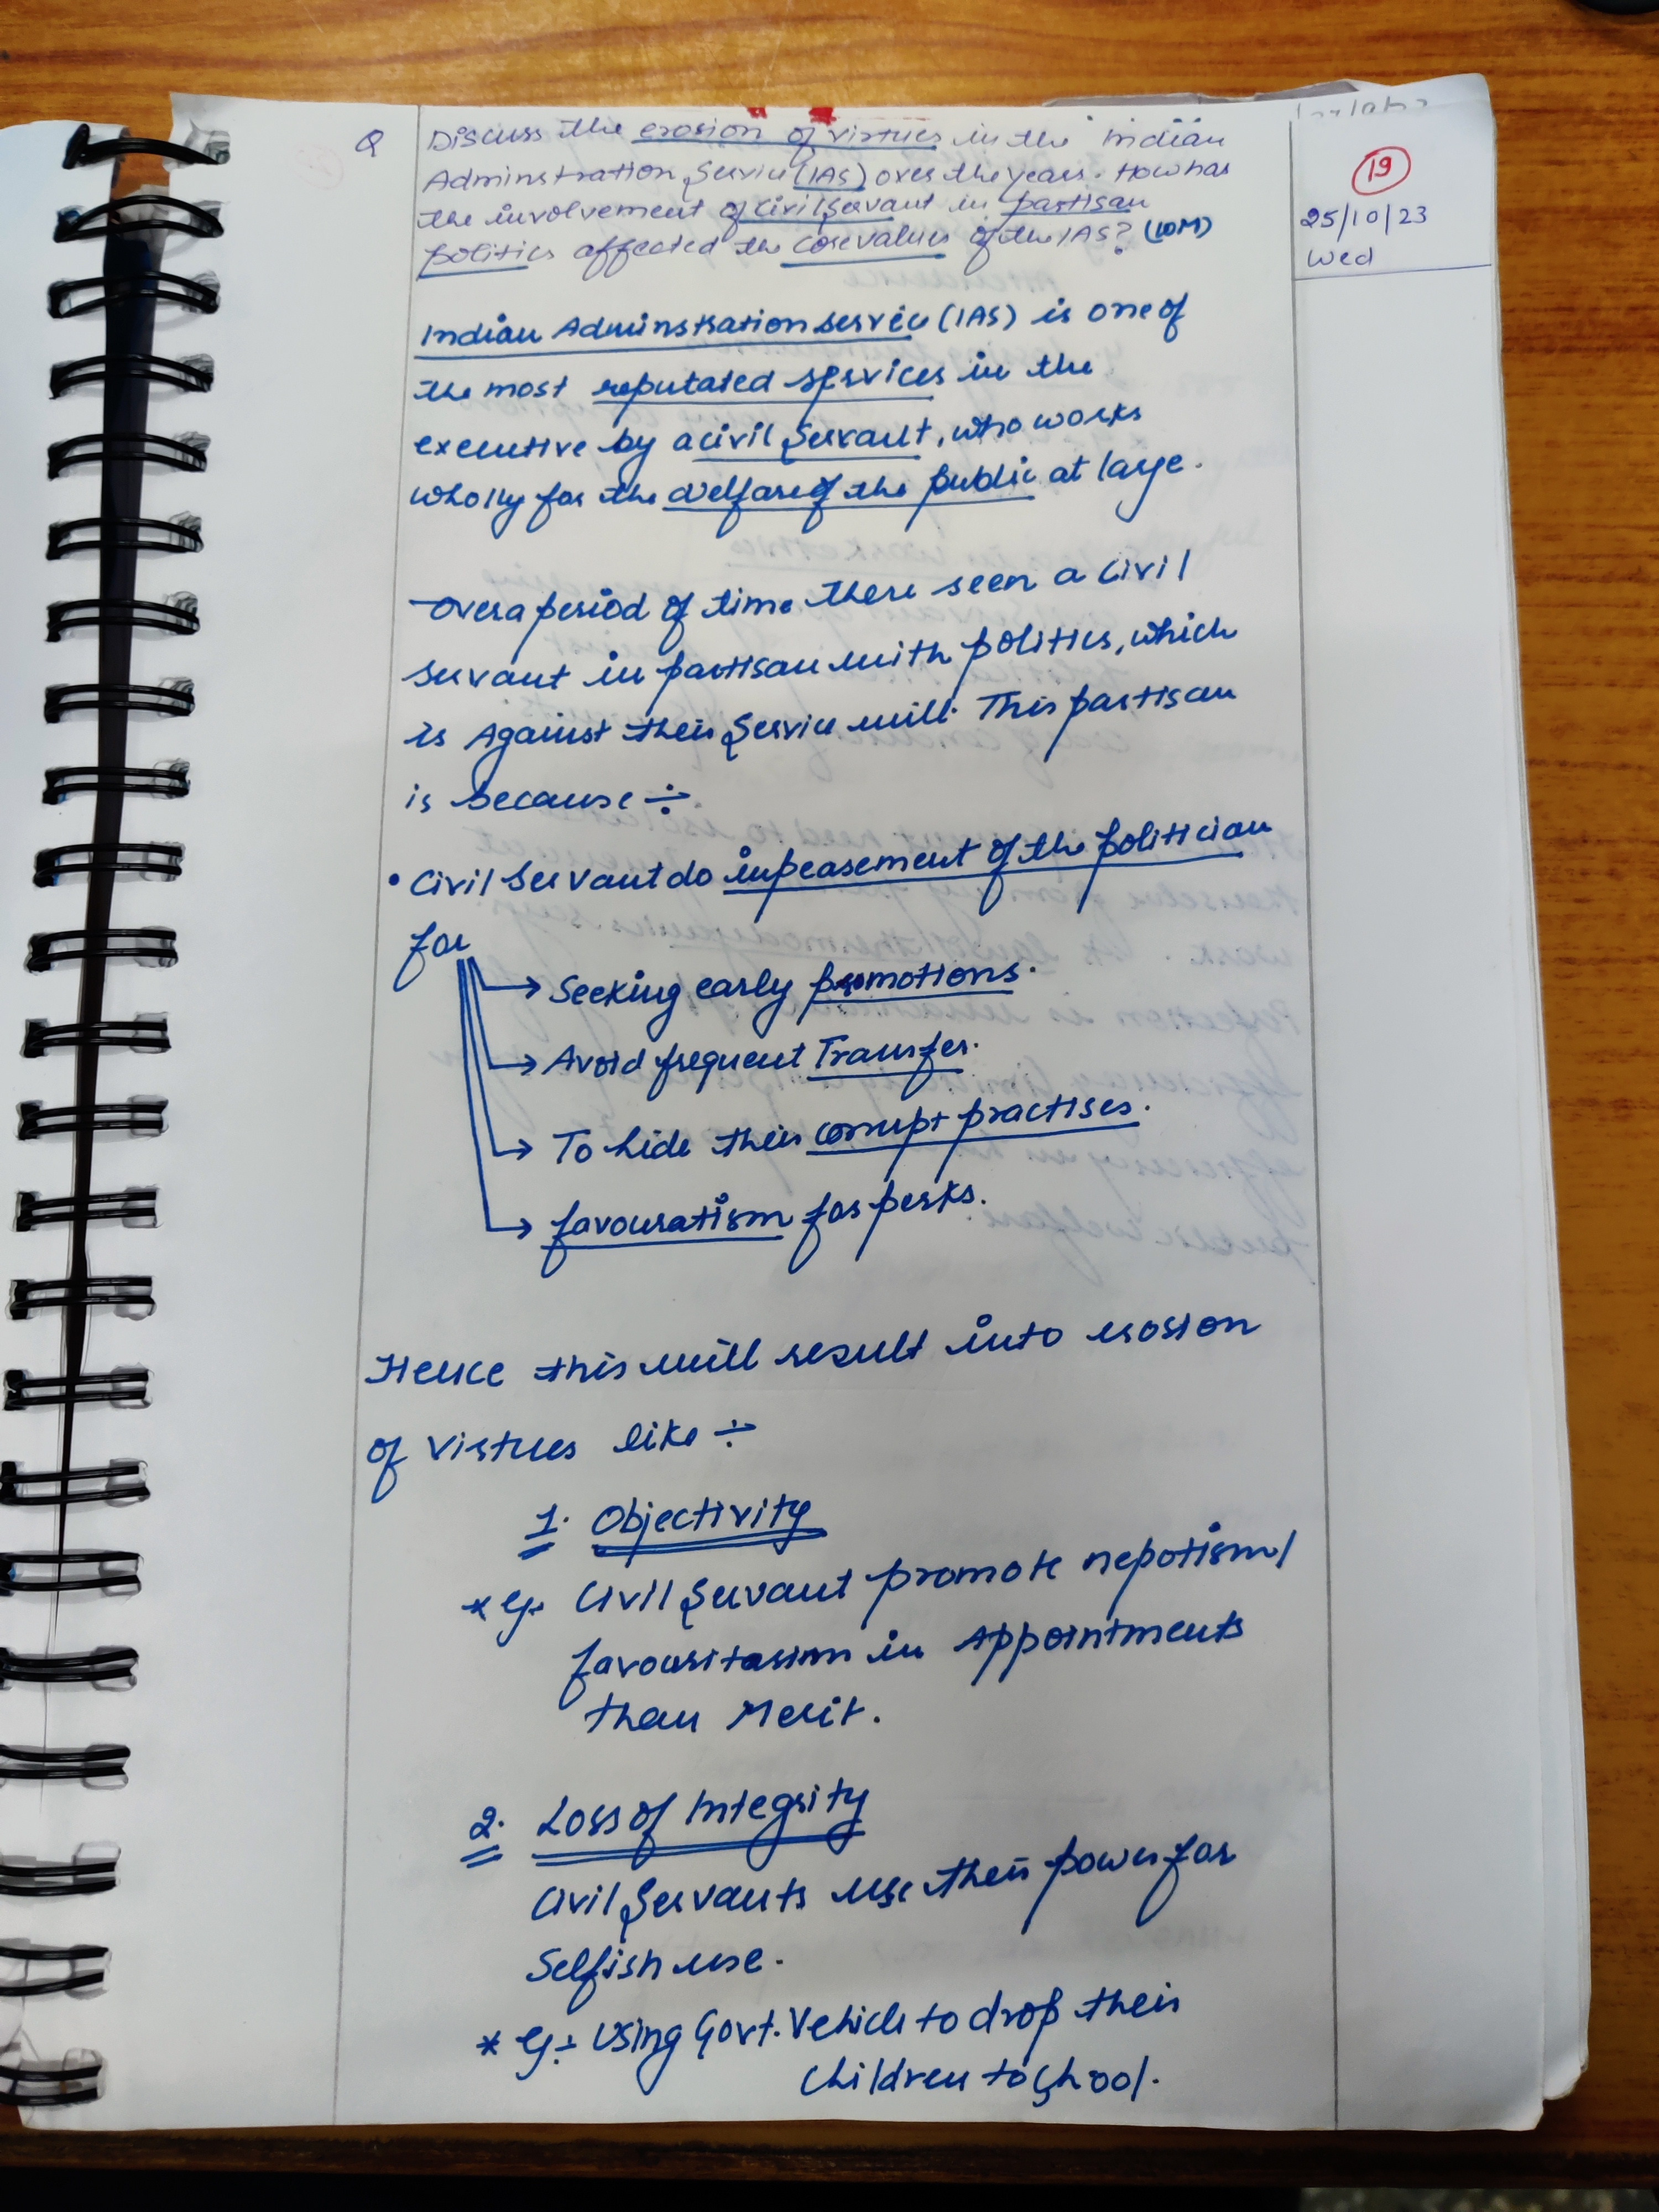 Q Discuss the erosion of virtues in the Indian
Adminstration Service (IAS) over the years. How has
the involvement of civil servant in partisan
politics affected the core values of the IAS? (10M)
19
25/10/23
Wed
Indian Adminstration service (IAS) is one of
the most reputated services in the
executive by a civil servant, who works
wholly for the welfare of the public at large.
Over a period of time there seen a civil
servant in partisan with politics, which
is Against their service will. This partisan
is because ÷
• Civil Servant do inpeasement of the politician
for
→ Seeking early promotions.
→ Avoid frequent Transfer.
→ To hide their corrupt practises.
→ favouratism for perks.
Hence this will result into erosion
of virtues like ÷
1. Objectivity
* eg. Civil Servant promote nepotism/
favouritasim in Appointments
than Merit.
2. Loss of Integrity
Civil Servants use their power for
Selfish use.
* eg ÷ Using Govt. Vehicle to drop their
children to school.